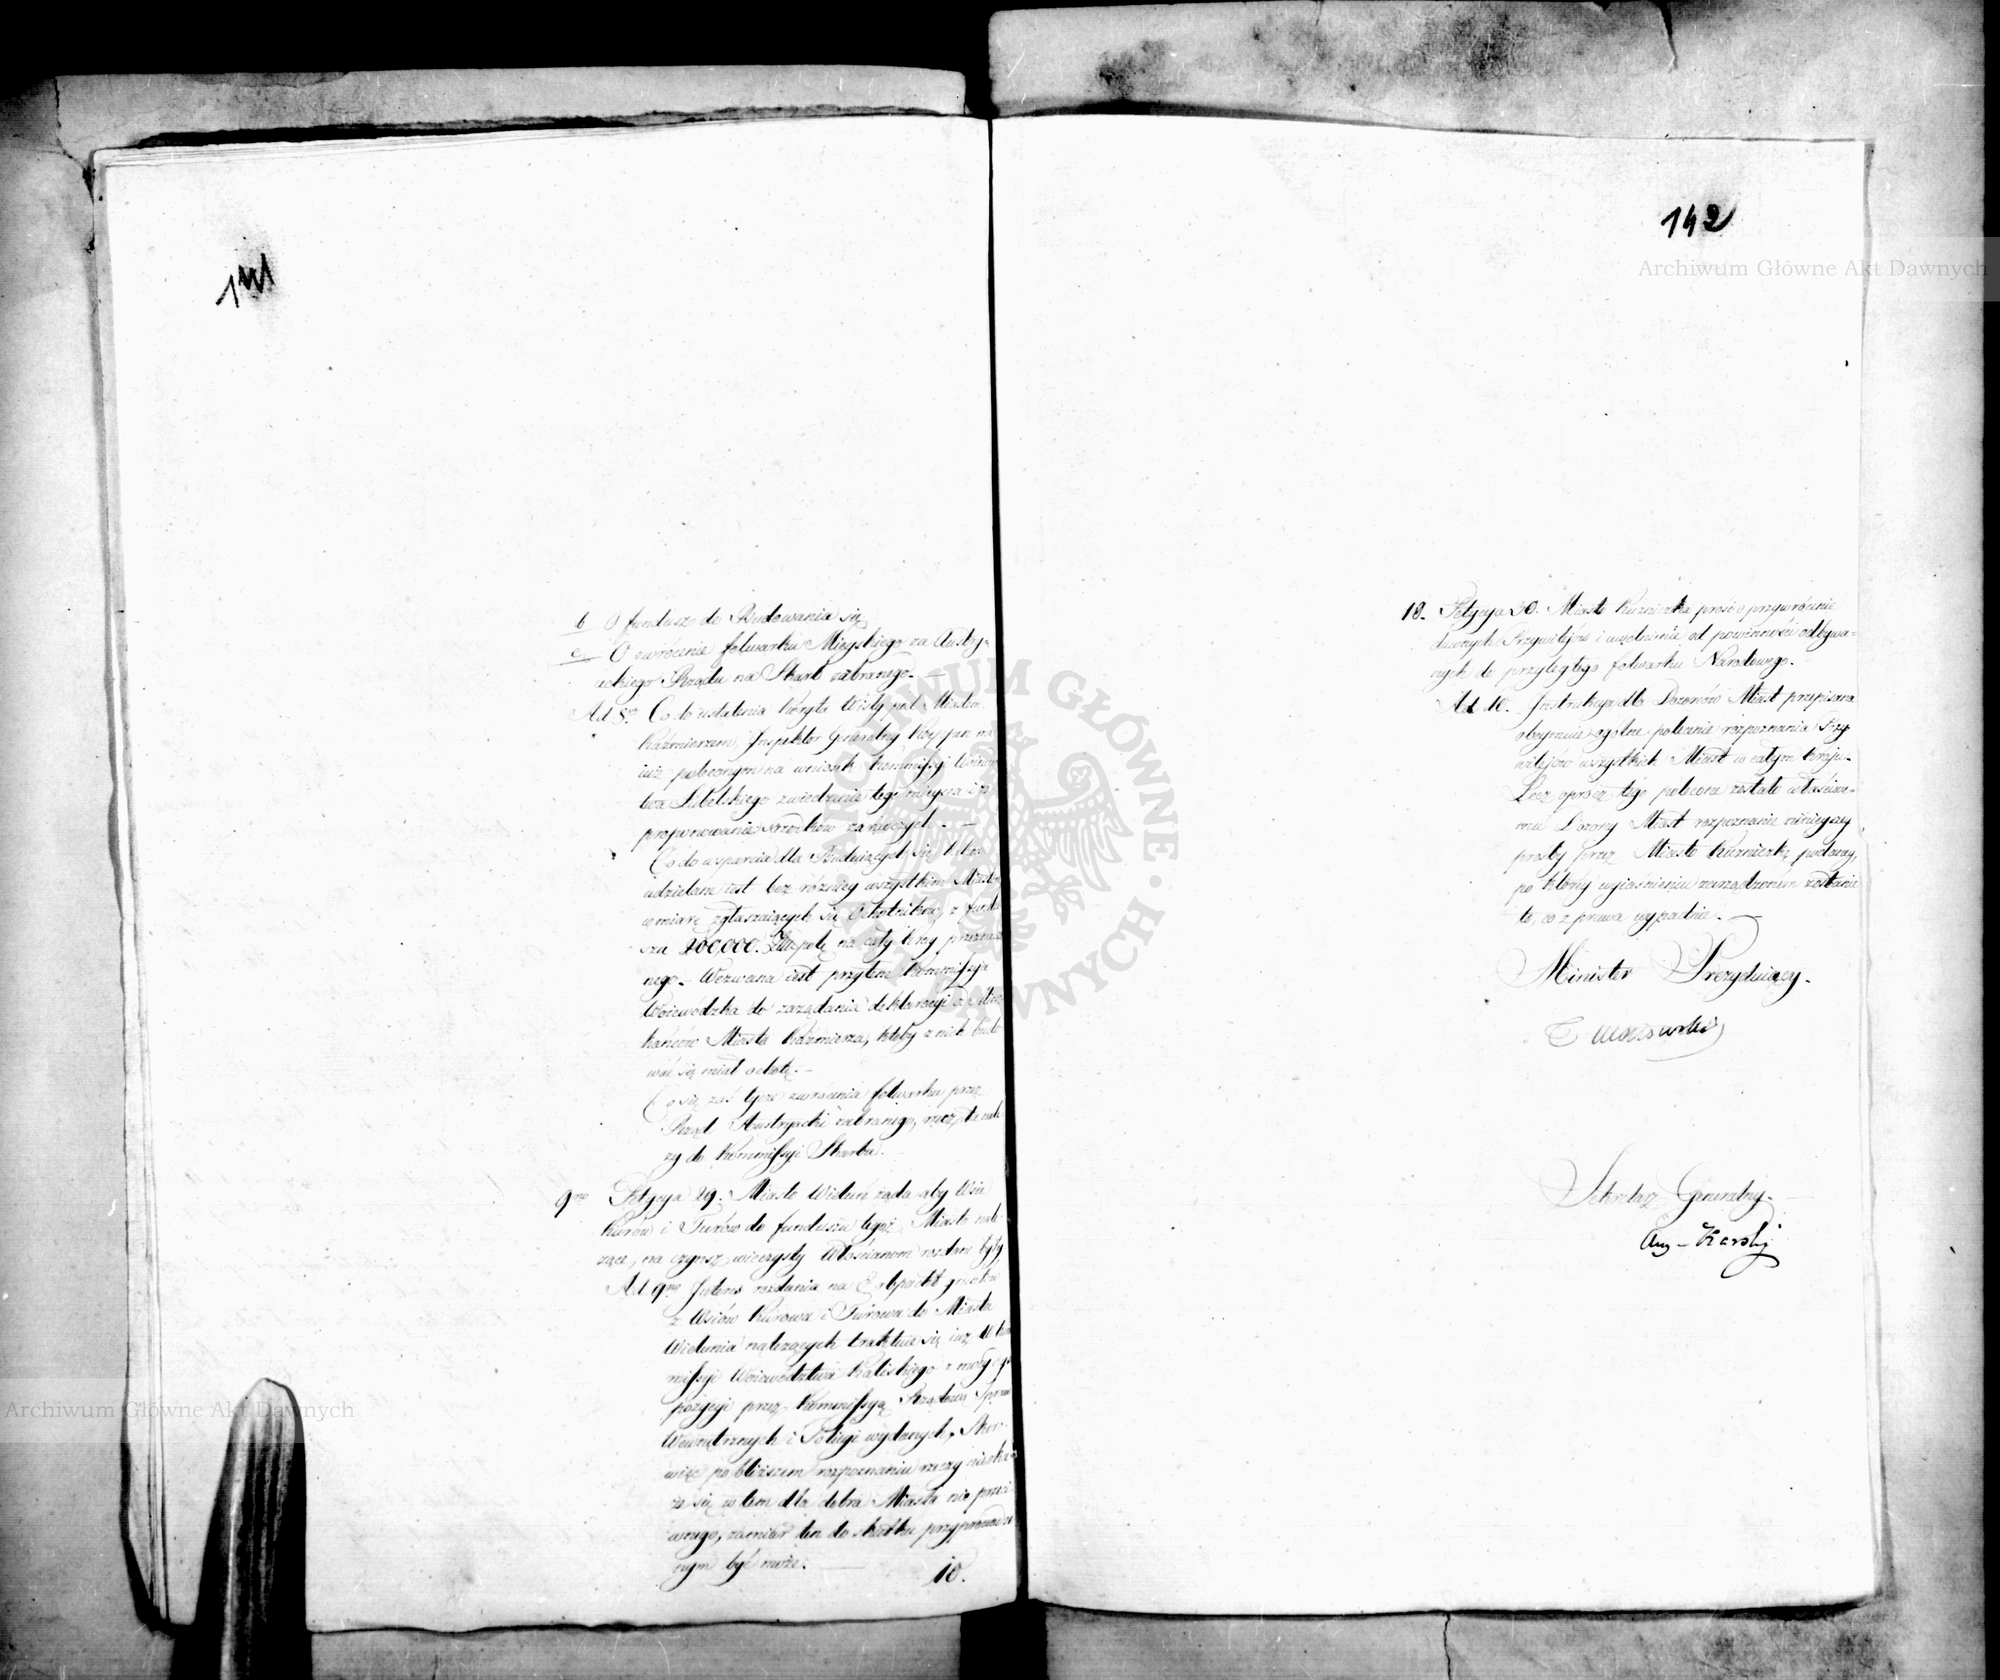 141
b O fundusz do Budowania się
c O zwrócenie folwarku Mieyskiego za Austry-
ackiego Rządu na Skarb zabranego. —
Ad 8. Co do ustalenia Koryta Wisły pod Miastem
Kaźmierzem, Inspektor Generalny ma
iuż poleconym na wniosek Kommissyi Wojewódz
twa Lubelskiego zwiedzenie tego mieysca i
proponowanie środków zaradczych. —
Co do wsparcia dla Buduiących się
udzielane iest bez różnicy wszystkim Miastom
w miarę zgłaszaiących się Ochotników, z fundu
szu 200,000. Złłpol, na cały kray przeznaczo
nego. — Wezwana iest przytem Kommissyja
Woiewódzka do zażądania deklaracyi od Miesz
kańców Miasta Kaźmierza, któby z nich budo
wać się miał ochotę. —
Co się zaś tycze zwrócenia folwarku przez
Rząd Austryacki zabranego, rzecz ta nale
ży do Kommissyi Skarbu.
9no Petycya 29. Miasto Wieluń żąda aby Wsie
Kurów i Turów do funduszu tegoż Miasta nale
żące, na czynsz wieczysty Włościanom rozdane były
Ad 9no Interes rozdania na gruntów
z Wsiów Kurowa i Turowa do Miasta
Wielunia należących traktuie się iuż w Kom
missyi Woiewództwa Kaliskiego z mocy
pozycyi przez Kommissyą Rządową Spraw
Wewnętrznych i Policyi wydanych, Skoro
więc po bliższem rozpoznaniu rzeczy nieoka
że się w tem dla dobra Miasta nic przeci
wnego, zamiar ten do skutku przyprowadzo
nym być może. —
10.
142
Archiwum Główne Akt Dawnych
10. Petycya 30. Miasto Kuźniczka prosi o przywrócenie
dawnych Przywilejów i uwolnienie od powinności odbywa-
nych do przyległego folwarku Narodowego. —
Ad 10. Instrukcya dla Dozorów Miast przepisana
obeymuie ogólne polecenie rozpoznania Przy
wilejów wszystkich Miast w całym kraju.
Lecz oprócz tego polecone zostało właściwe-
mu Dozorcy Miast rozpoznanie ninieyszey
prośby przez Miasto Kuźniczkę podaney,
po któréy wyiaśnieniu zarządzonem zostanie
to, co z prawa wypadnie. —
Minister Prezyduiący.
T Mostowski
Sekretarz Generalny.
Aug – Karski
Archiwum Główne Akt Dawnych
ARCHIWUM GŁÓWNE AKT DAWNYCH